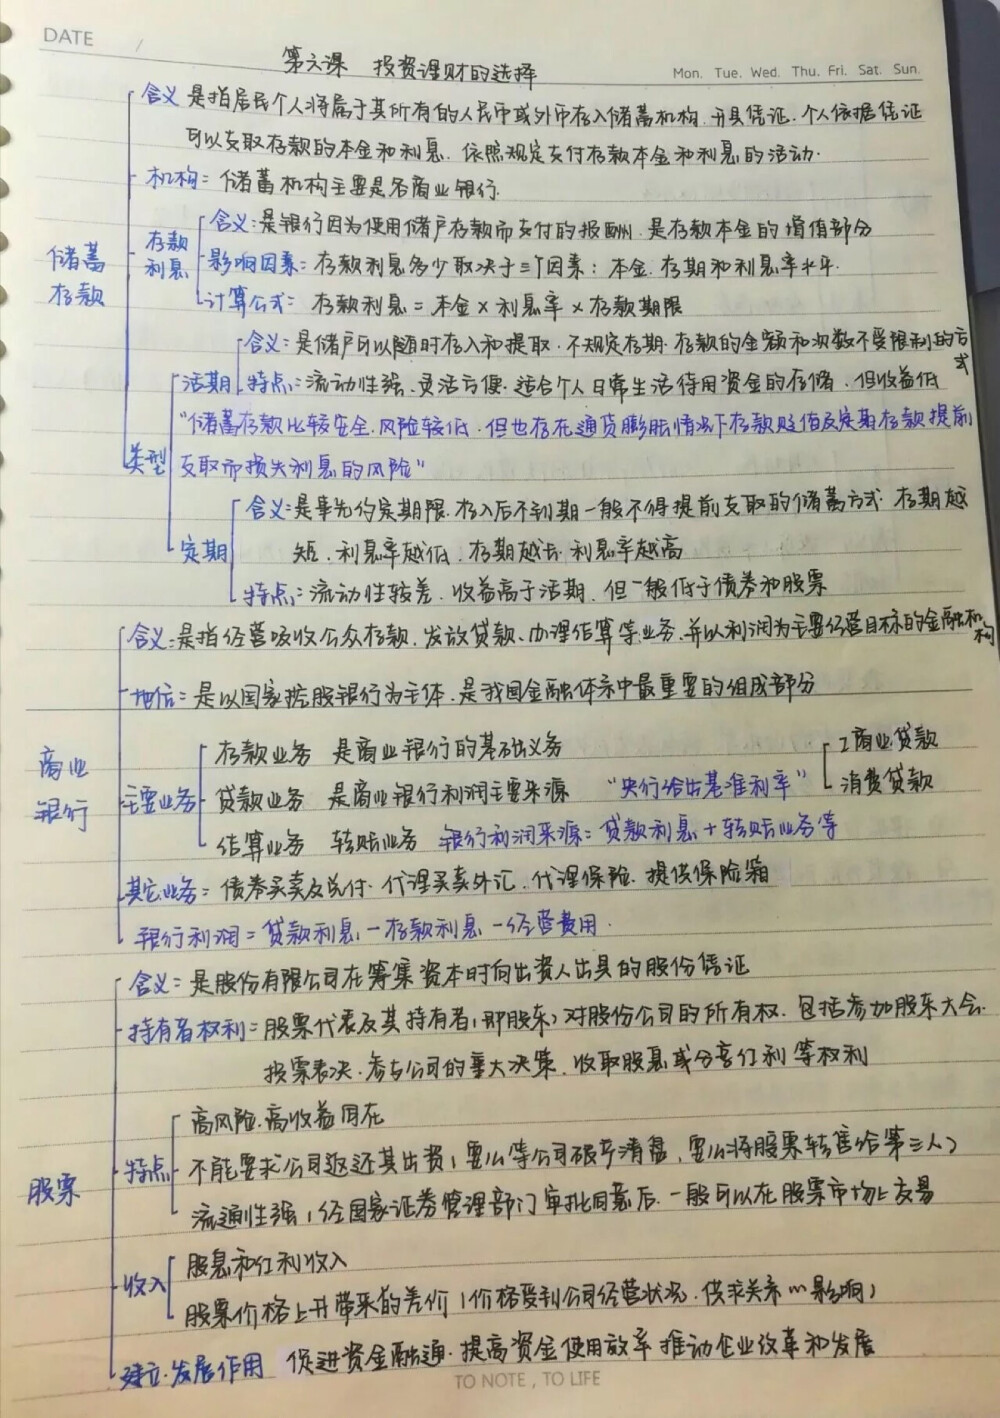 DATE /
第六课 投资理财的选择
Mon. Tue. Wed. Thu. Fri. Sat. Sun.
含义 是指居民个人将属于其所有的人民币或外币存入储蓄机构,开具凭证,个人依据凭证
可以支取存款的本金和利息,依照规定支付存款本金和利息的活动.
机构:储蓄机构主要是各商业银行.
储蓄存款
存款利息
含义:是银行因为使用储户存款而支付的报酬,是存款本金的增值部分
影响因素:存款利息多少取决于三个因素:本金.存期和利息率水平.
计算公式:存款利息=本金×利息率×存款期限
类型
活期
含义:是储户可以随时存入和提取,不规定存期.存款的金额和次数不受限制的方式
特点:流动性强、灵活方便、适合个人日常生活待用资金的存储,但收益低
"储蓄存款比较安全,风险较低,但也存在通货膨胀情况下存款贬值及定期存款提前
支取而损失利息的风险"
定期
含义:是事先约定期限,存入后不到期一般不得提前支取的储蓄方式 存期越
短,利息率越低,存期越长,利息率越高
特点:流动性较差,收益高于活期,但一般低于债券和股票
商业银行
含义:是指经营吸收公众存款、发放贷款、办理结算等业务,并以利润为主要经营目标的金融机构
地位:是以国家控股银行为主体,是我国金融体系中最重要的组成部分
主要业务
存款业务 是商业银行的基础义务
贷款业务 是商业银行利润主要来源 "央行给出基准利率" 工商业贷款
消费贷款
结算业务 转账业务 银行利润来源:贷款利息+转账业务等
其它业务:债券买卖及兑付.代理买卖外汇、代理保险.提供保险箱
银行利润=贷款利息-存款利息-经营费用.
股票
含义:是股份有限公司在筹集资本时向出资人出具的股份凭证
持有者权利:股票代表及其持有者(即股东)对股份公司的所有权.包括参加股东大会.
投票表决.参与公司的重大决策.收取股息或分享红利等权利
特点
高风险.高收益同在
不能要求公司返还其出资(要么等公司破产清盘,要么将股票转售给第三人)
流通性强(经国家证券管理部门审批同意后.一般可以在股票市场上交易
收入
股息和红利收入
股票价格上升带来的差价(价格受到公司经营状况.供求关系…影响)
建立.发展作用 促进资金融通.提高资金使用效率 推动企业改革和发展
TO NOTE , TO LIFE